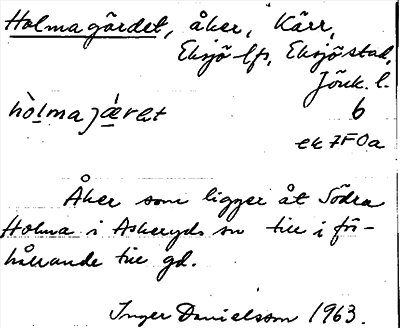 Holmagärdet, åker, Kärr,
Eksjö lfs, Eksjö stad,
Jönk. l.
hòlmajǽret 6
ek 7F0a
Åker som ligger åt Södra
Holma i Askeryds sn till i för-
hållande till gd.
Inger Danielsson 1963.